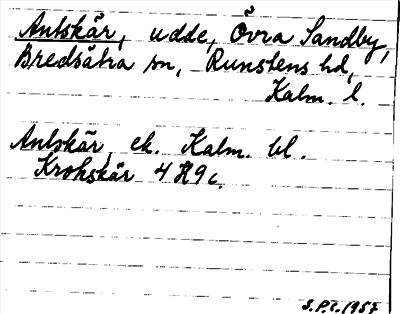 Antskär, udde, Övra Sandby,
Bredsätra sn, Runstens hd,
Kalm. l.
Antskär, ek. Kalm. bl.
Krokskär 4 H 9 c.
S.P.t. 1957